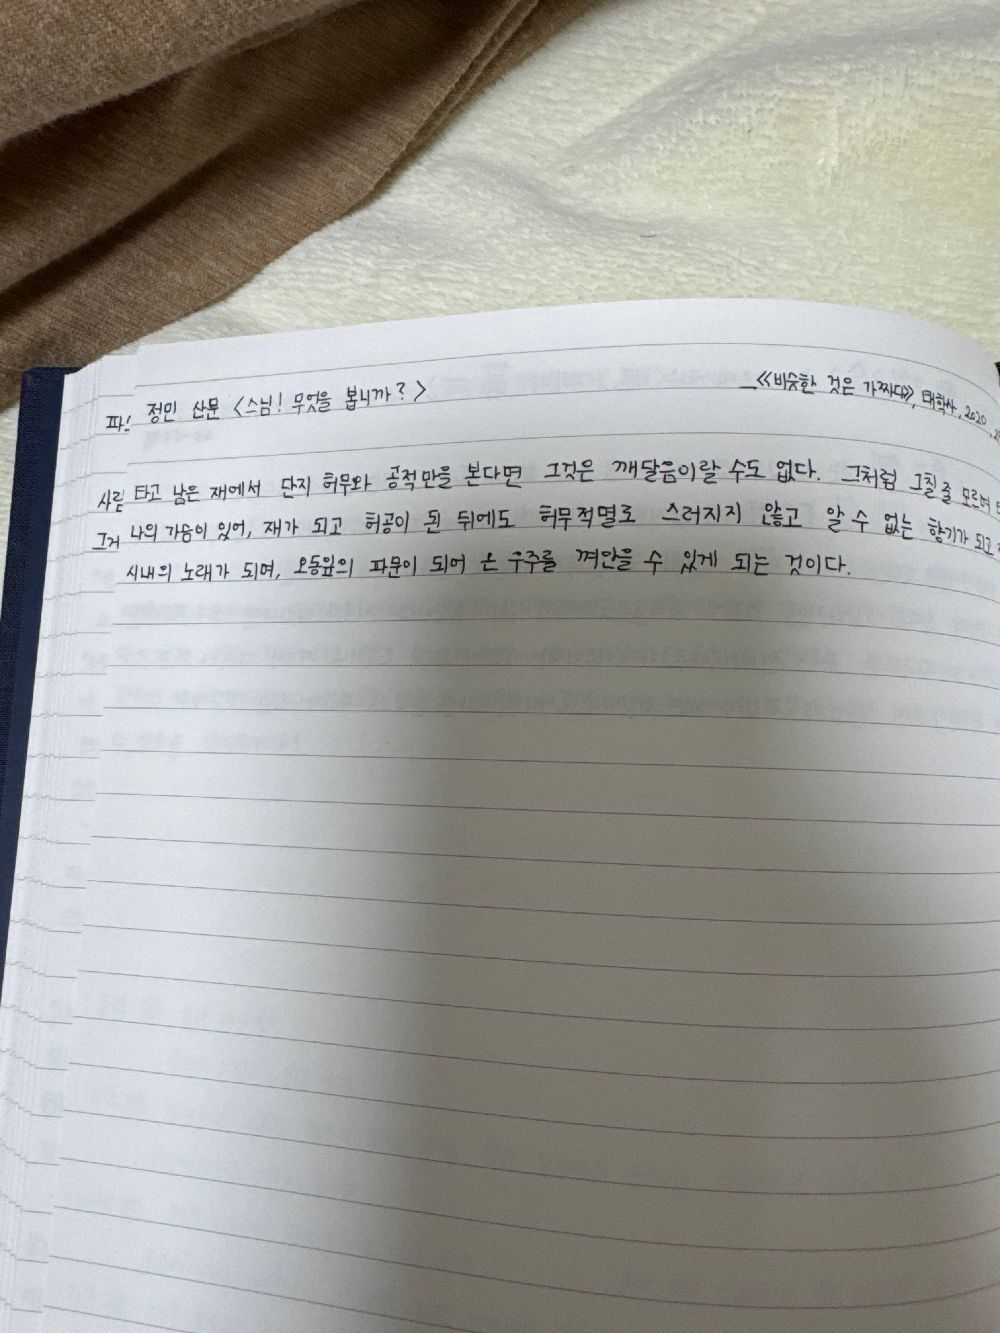 정민 산문 <스님! 무엇을 봅니까?>
—《비슷한 것은 가짜다》, 태학사, 2020,
타고 남은 재에서 단지 허무와 공적만을 본다면 그것은 깨달음이랄 수도 없다. 그처럼 그칠 줄 모르며
나의 가슴이 있어, 재가 되고 허공이 된 뒤에도 허무적멸로 스러지지 않고 알 수 없는 향기가 되고
시내의 노래가 되며, 오동잎의 파문이 되어 온 우주를 껴안을 수 있게 되는 것이다.